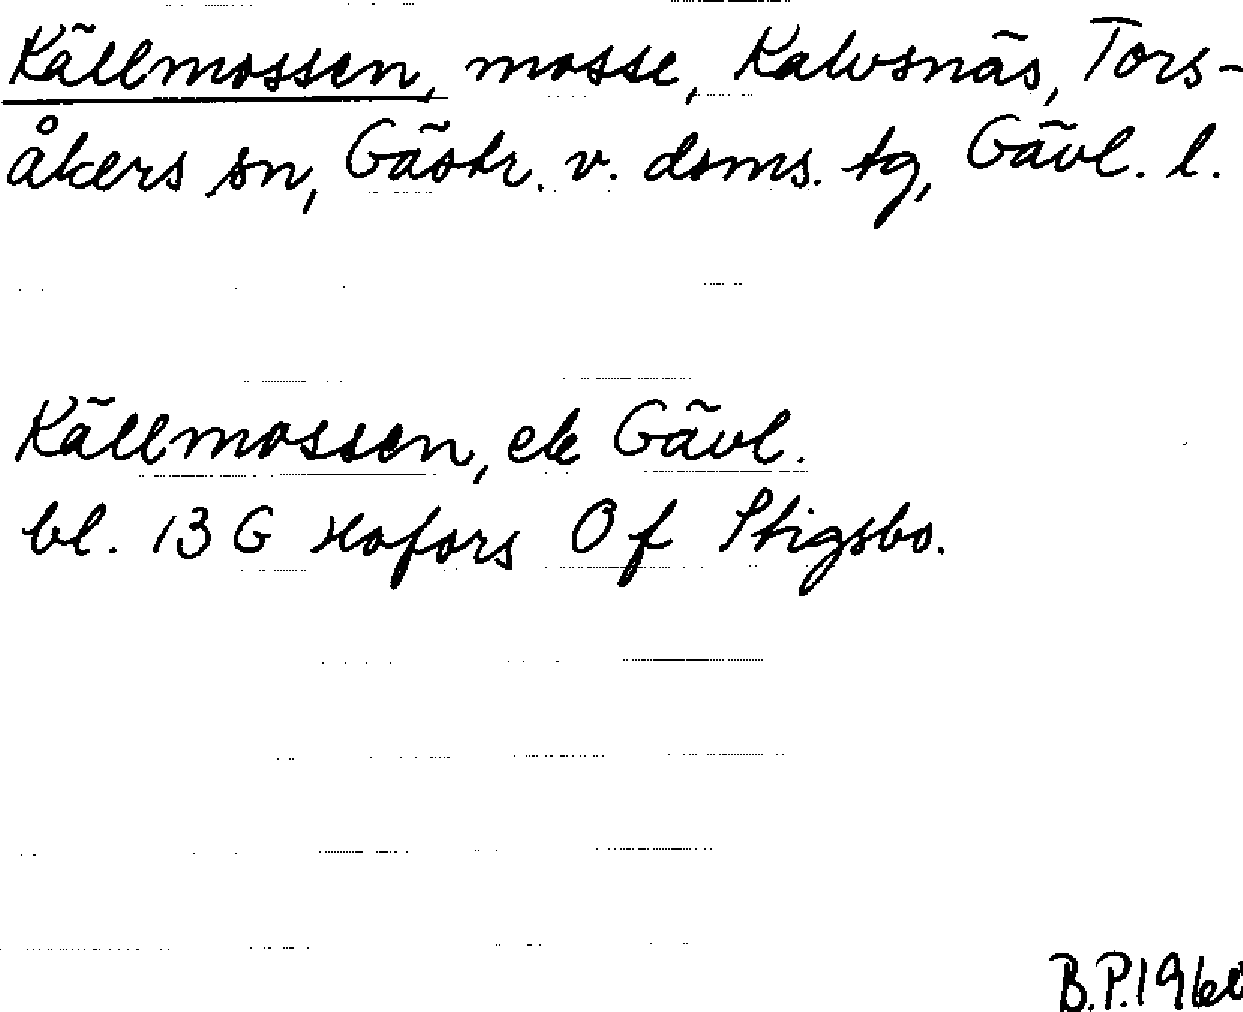 Källmossen, mosse, Kalvsnäs, Tors-
åkers sn, Gästr. v. doms. tg, Gävl. l.
Källmossen, ek Gävl.
bl. 13 G Hofors 0 f Stigsbo.
B.P.